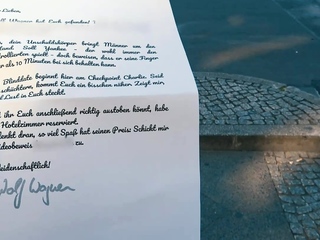 Lieben,
Wagner hat Euch gefunden!
dein Unschuldskörper bringt Männer um den
Soll Yankee - der wohl immer den
trollierten spielt - doch beweisen, dass er seine Finger
r als 10 Minuten bei sich behalten kann.
Blinddate beginnt hier am Checkpoint Charlie. Seid
schüchtern, kommt Euch ein bisschen näher. Zeigt mir,
Lust in Euch steckt.
ihr Euch anschließend richtig austoben könnt, habe
Hotelzimmer reserviert.
denkt dran, so viel Spaß hat seinen Preis: Schickt mir
ideobeweis zu.
eidenschaftlich!
Wolf Wagner